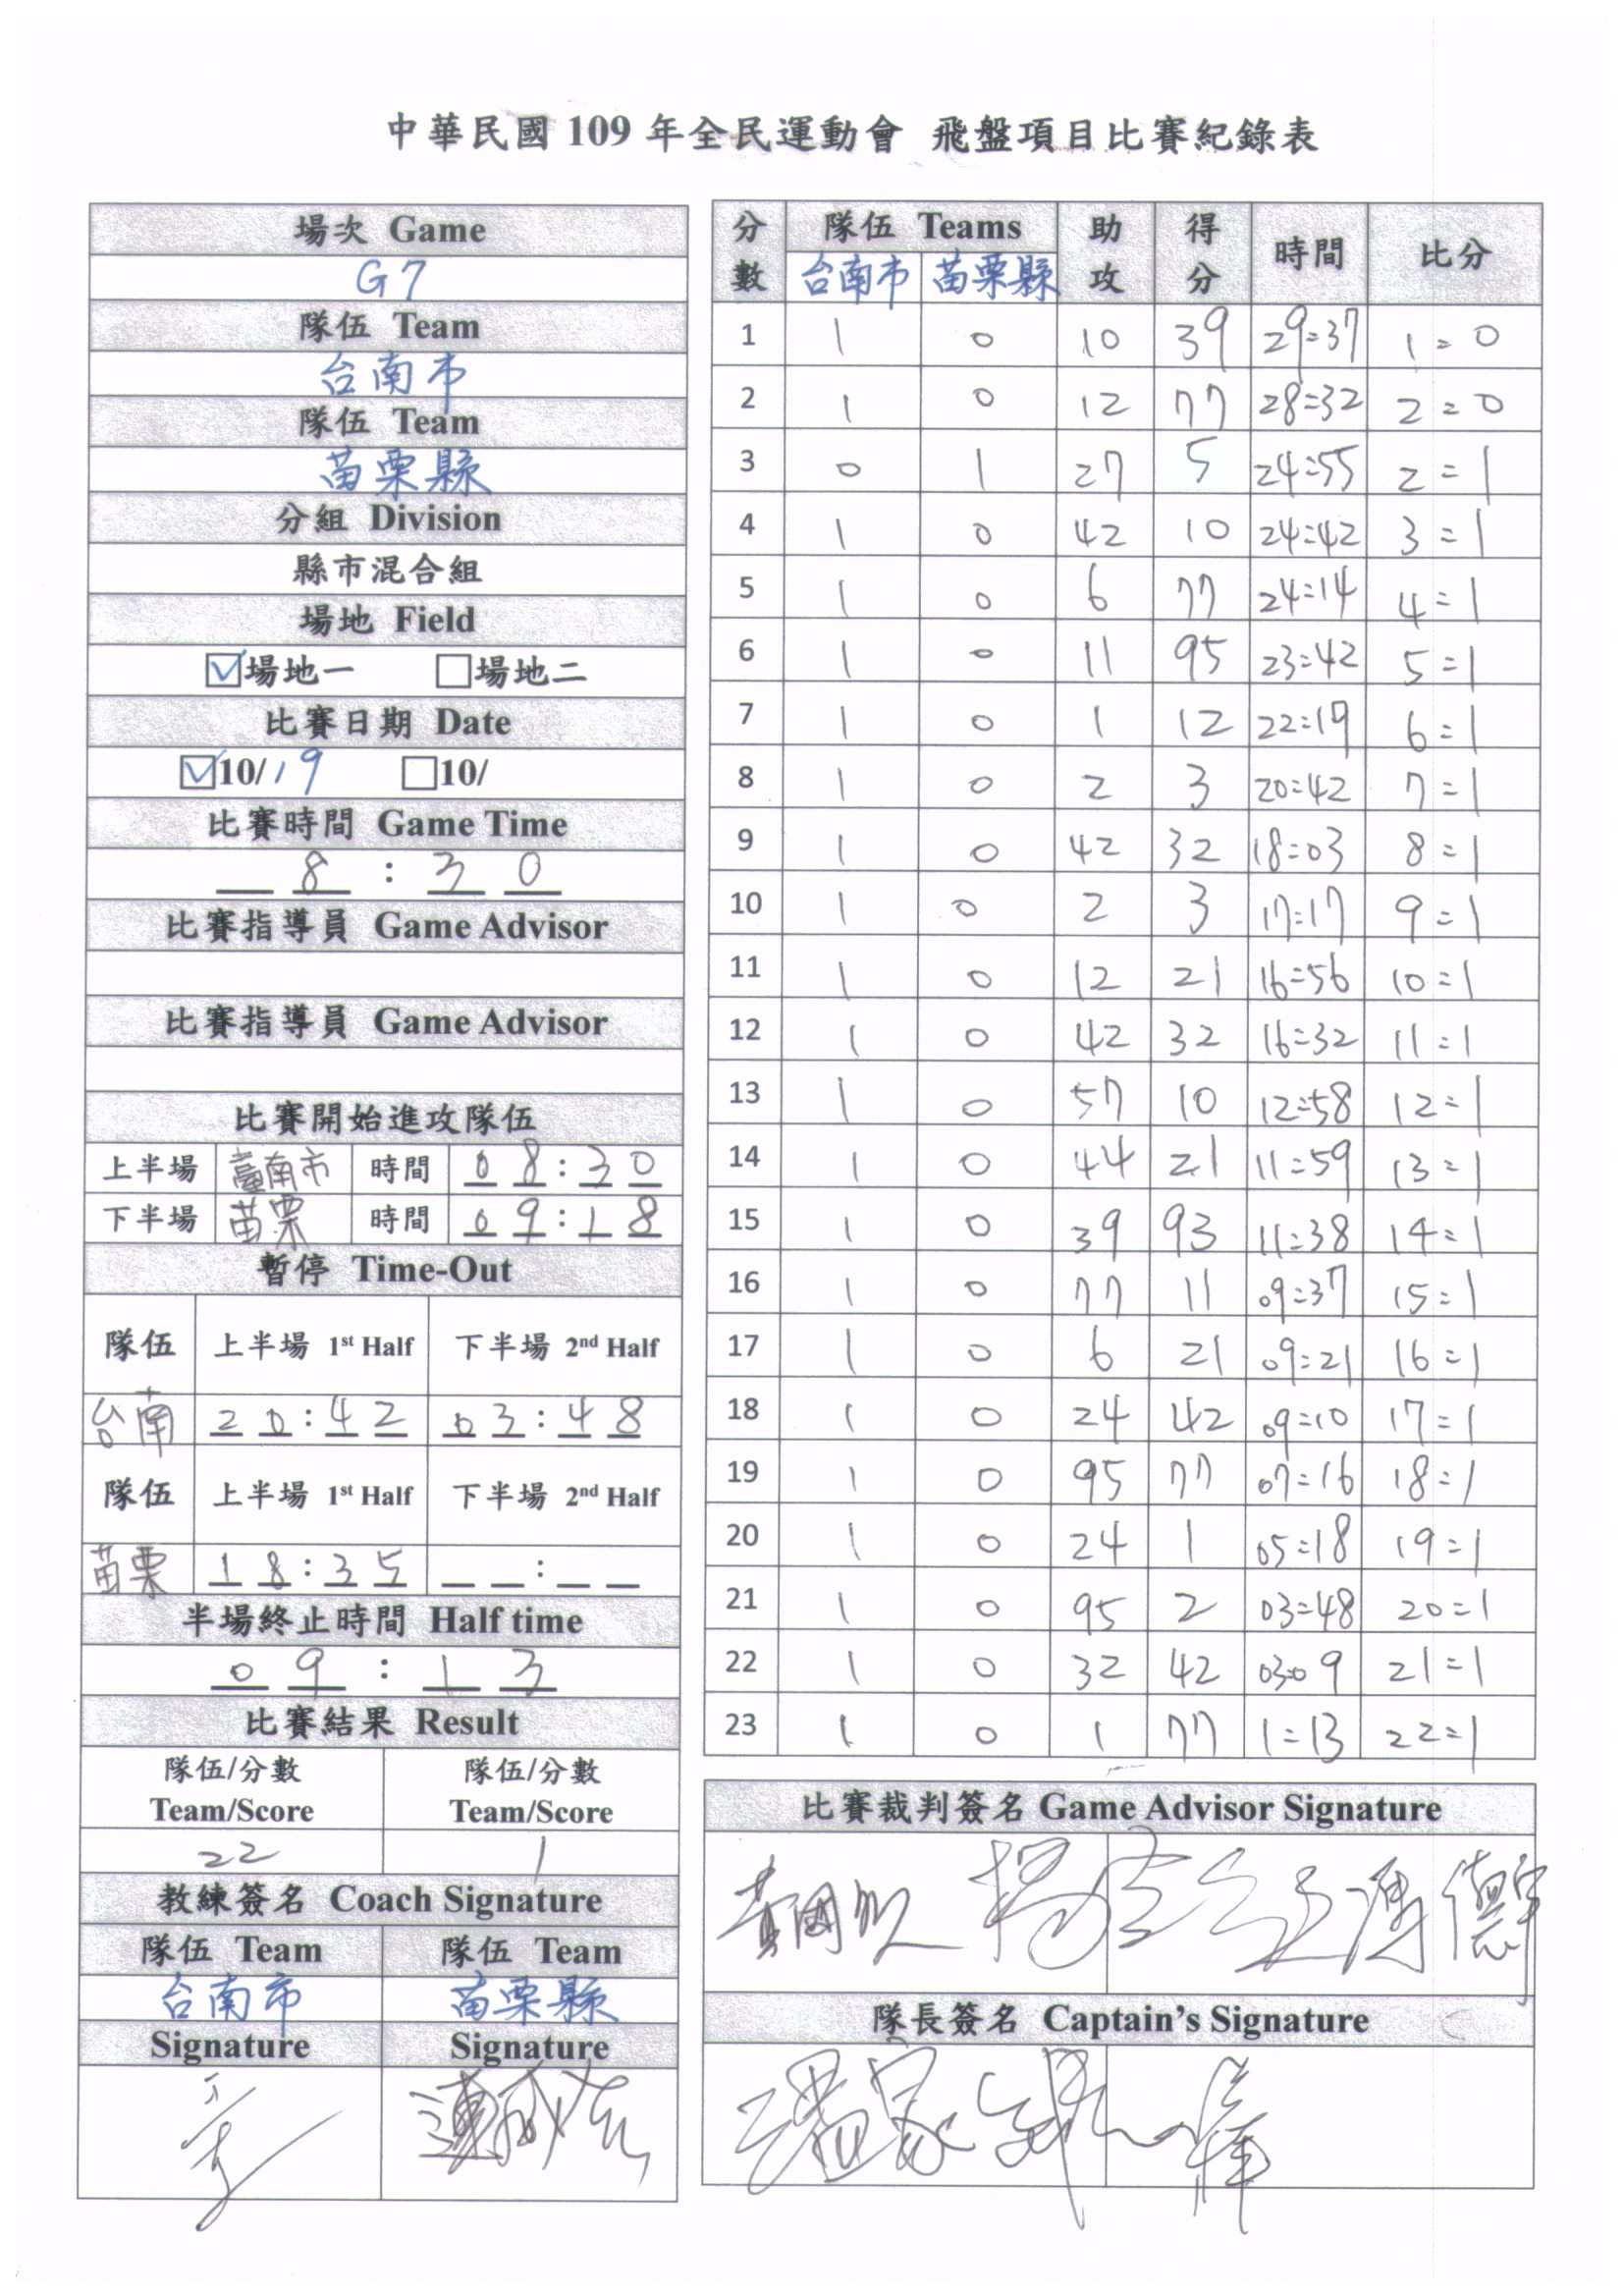 中華民國 109 年全民運動會 飛盤項目比賽紀錄表
場次 Game
G7
隊伍 Team
台南市
隊伍 Team
苗栗縣
分組 Division
縣市混合組
場地 Field
場地一 場地二
比賽日期 Date
10/19 10/
比賽時間 Game Time
8 : 3 0
比賽指導員 Game Advisor
比賽指導員 Game Advisor
比賽開始進攻隊伍
上半場 臺南市 時間 0 8 : 3 0
下半場 苗栗 時間 0 9 : 1 8
暫停 Time-Out
隊伍 上半場 1st Half 下半場 2nd Half
台南 2 0 : 4 2 0 3 : 4 8
隊伍 上半場 1st Half 下半場 2nd Half
苗栗 1 8 : 3 5 :
半場終止時間 Half time
0 9 : 1 3
比賽結果 Result
隊伍/分數 隊伍/分數
Team/Score Team/Score
22 1
教練簽名 Coach Signature
隊伍 Team 隊伍 Team
台南市 苗栗縣
Signature Signature
分數 隊伍 Teams 助攻 得分 時間 比分
台南市 苗栗縣
1 1 0 10 39 29=37 1=0
2 1 0 12 77 28=32 2=0
3 0 1 27 5 24=55 2=1
4 1 0 42 10 24=42 3=1
5 1 0 6 77 24=14 4=1
6 1 0 11 95 23=42 5=1
7 1 0 1 12 22=19 6=1
8 1 0 2 3 20=42 7=1
9 1 0 42 32 18=03 8=1
10 1 0 2 3 17=17 9=1
11 1 0 12 21 16=56 10=1
12 1 0 42 32 16=32 11=1
13 1 0 57 10 12=58 12=1
14 1 0 44 21 11=59 13=1
15 1 0 39 93 11=38 14=1
16 1 0 77 11 09=37 15=1
17 1 0 6 21 09=21 16=1
18 1 0 24 42 09=10 17=1
19 1 0 95 77 07=16 18=1
20 1 0 24 1 05=18 19=1
21 1 0 95 2 03=48 20=1
22 1 0 32 42 03=09 21=1
23 1 0 1 77 1=13 22=1
比賽裁判簽名 Game Advisor Signature
隊長簽名 Captain's Signature